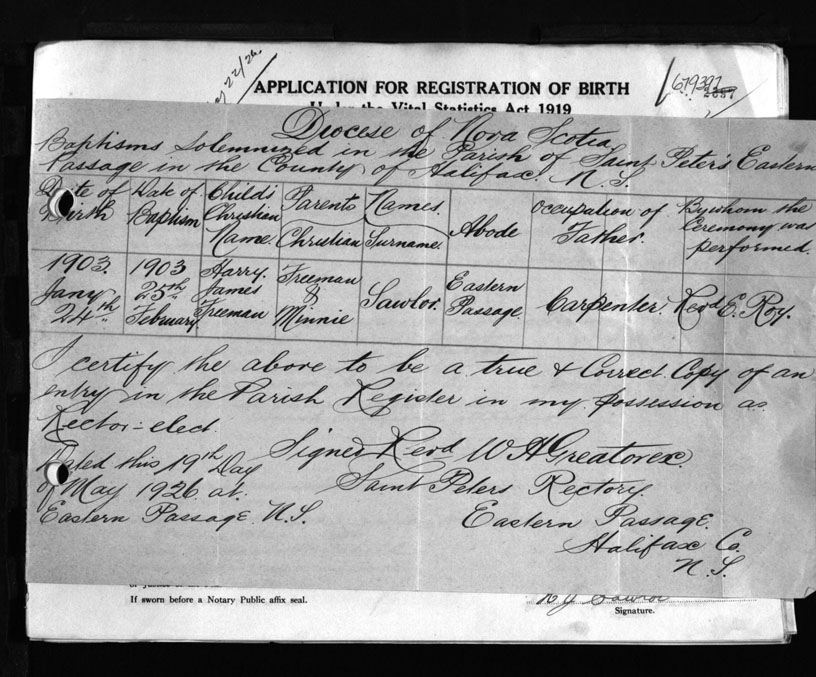 22/26.
APPLICATION FOR REGISTRATION OF BIRTH
Under the Vital Statistics Act 1919
679397
2857
Diocese of Nova Scotia.
Baptisms Solemnized in the Parish of Saint Peter's Eastern
Passage in the County of Halifax. N.S.
Date of Birth
Date of Baptism
Child's Christian Name.
Parents Names.
Christian
Surname.
Abode
Occupation of Father.
By whom the Ceremony was performed.
1903. Jany 24th
1903 25th February
Harry James Freeman
Freeman & Minnie
Sawlor.
Eastern Passage
Carpenter.
Revd E. Roy.
I certify the above to be a true & Correct Copy of an
entry in the Parish Register in my possession as
Rector-elect.
Signed Revd W H Greatorex.
Dated this 19th Day
of May 1926 at.
Eastern Passage. N.S.
Saint Peters Rectory.
Eastern Passage.
Halifax Co.
N.S.
If sworn before a Notary Public affix seal.
H J Sawlor
Signature.